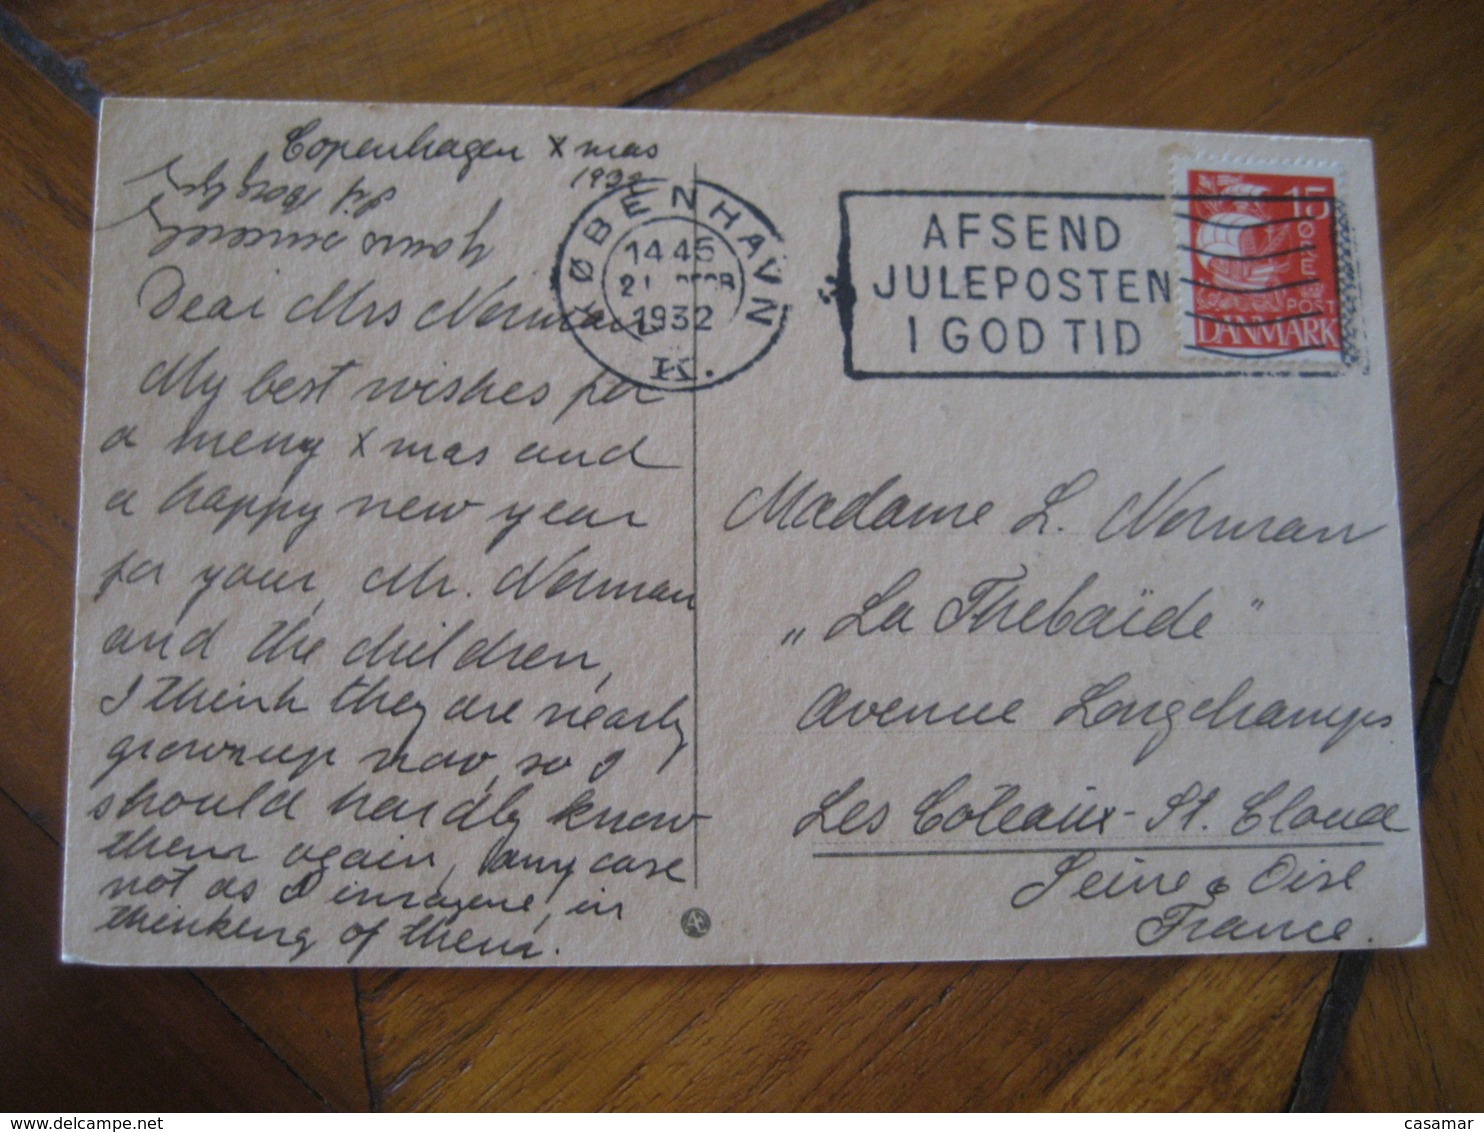 Copenhagen Xmas
1932
Dear Mrs Norman
My best wishes for
a merry Xmas and
a happy new year
for your, Mr. Norman
and the children,
I think they are nearly
grown up now, so I
should hardly know
them again, any case
not as I imagene, in
thinking of them.
yours
KØBENHAVN
14 45
21
1932
K.
AFSEND
JULEPOSTEN
I GOD TID
15
ØRE
POST
DANMARK
Madame L. Norman
„La Thebaïde"
Avenue Longchamps
Les Côteaux - St. Cloud
Seine & Oise
France.
casamar